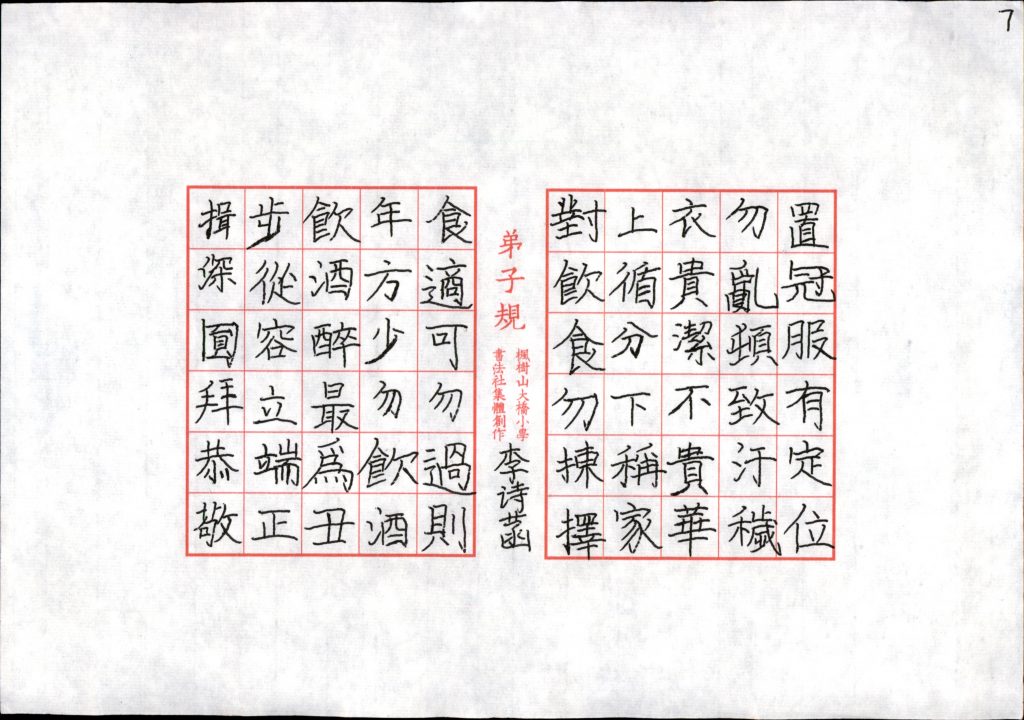 7
置冠服有定位
勿亂頓致汙穢
衣貴潔不貴華
上循分下稱家
對飲食勿揀擇
弟子規
楓樹山大橋小學
書法社集體創作
李诗菡
食適可勿過則
年方少勿飲酒
飲酒醉最爲丑
步從容立端正
揖深圓拜恭敬